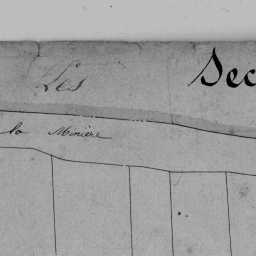 Les
Sec
la Minière